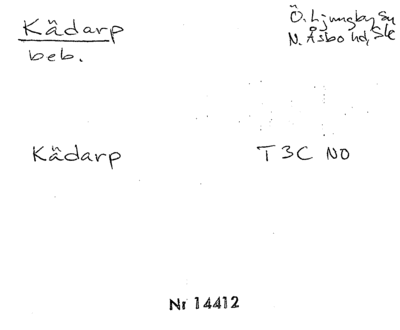 Kädarp
beb.
Ö. Ljungby sn
N. Åsbo hd, Sk
Kädarp
T 3C NO
Nr 14412